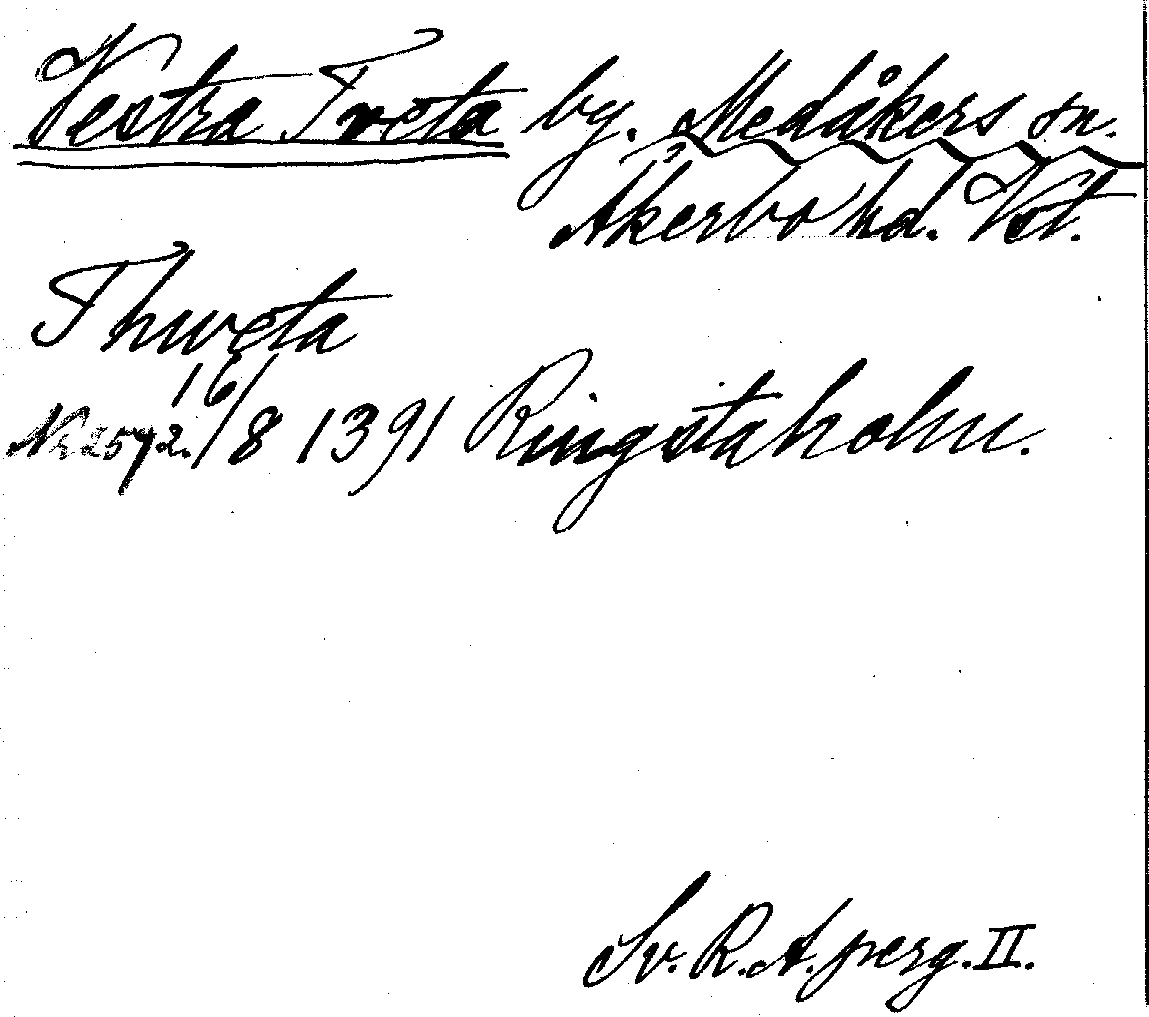 Vestra Tveta by. Medåkers sn.
Åkerbo hd. Vstl.
Thweta
Nr 2572. 16/8 1391 Ringstaholm.
Sv. R. A. perg. II.